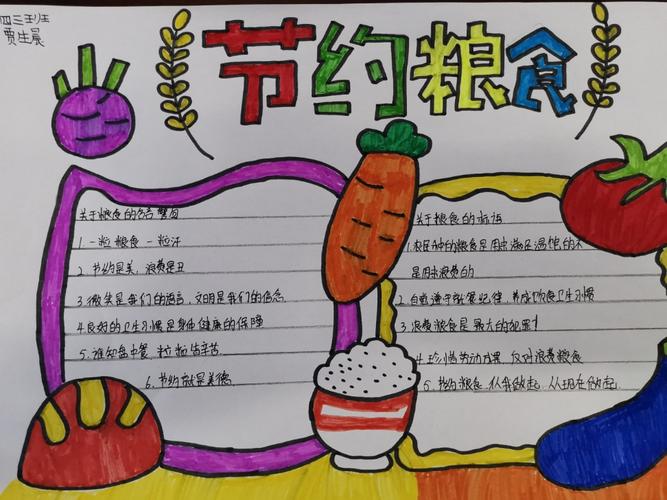 四三班
贾生晨
节约粮食
关于粮食的名言警句
1. 一粒粮食 一粒汗
2. 节约是美，浪费是丑
3 微笑是我们的语言，文明是我们的信念
4. 良好的卫生习惯是身体健康的保障
5. 谁知盘中餐 粒粒皆辛苦
6. 节约就是美德
关于粮食的标语
1. 农民种的粮食是用来满足温饱的不
是用来浪费的
2. 自觉遵守就餐纪律，养成饮食卫生习惯
3. 浪费粮食是最大的犯罪！
4. 珍惜劳动成果 反对浪费粮食
5 节约粮食 从我做起，从现在做起